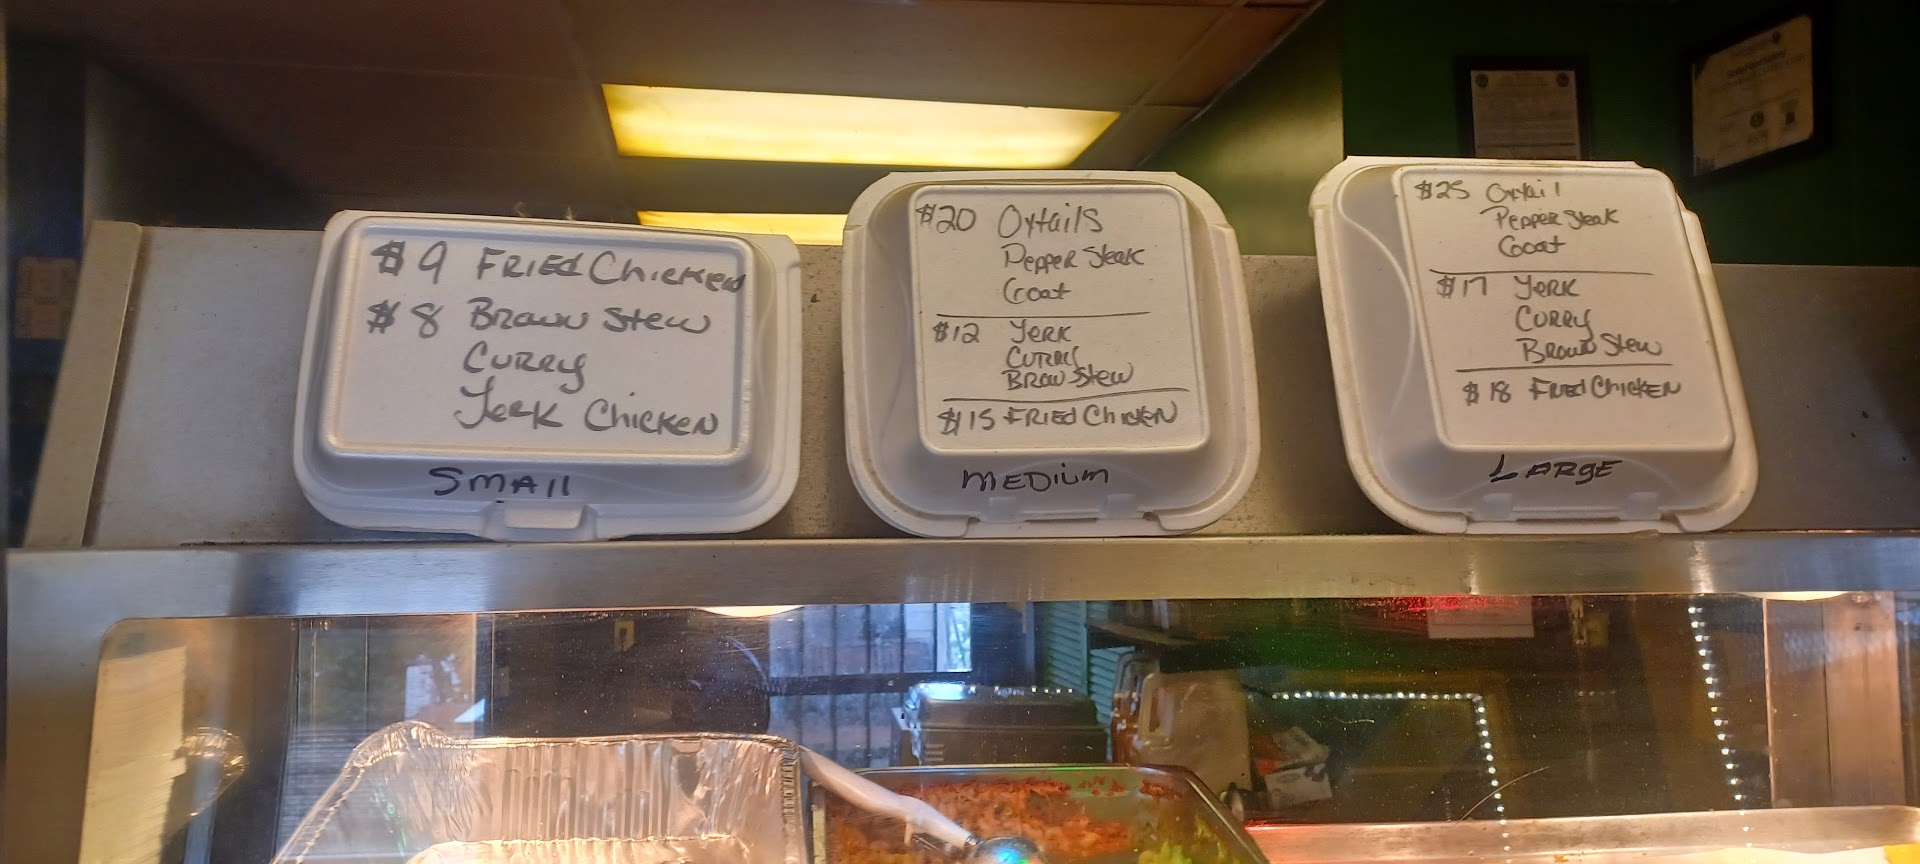 $9 FRIED Chicken
$8 Brown Stew
Curry
Jerk Chicken
SMAll
$20 Oxtails
Pepper Steak
Goat
$12 Jerk
Curry
Brow Stew
$15 FRIED Chicken
MEDium
$25 Oxtail
Pepper Steak
Goat
$17 Jerk
Curry
Brown Stew
$18 FRIED Chicken
LARgE